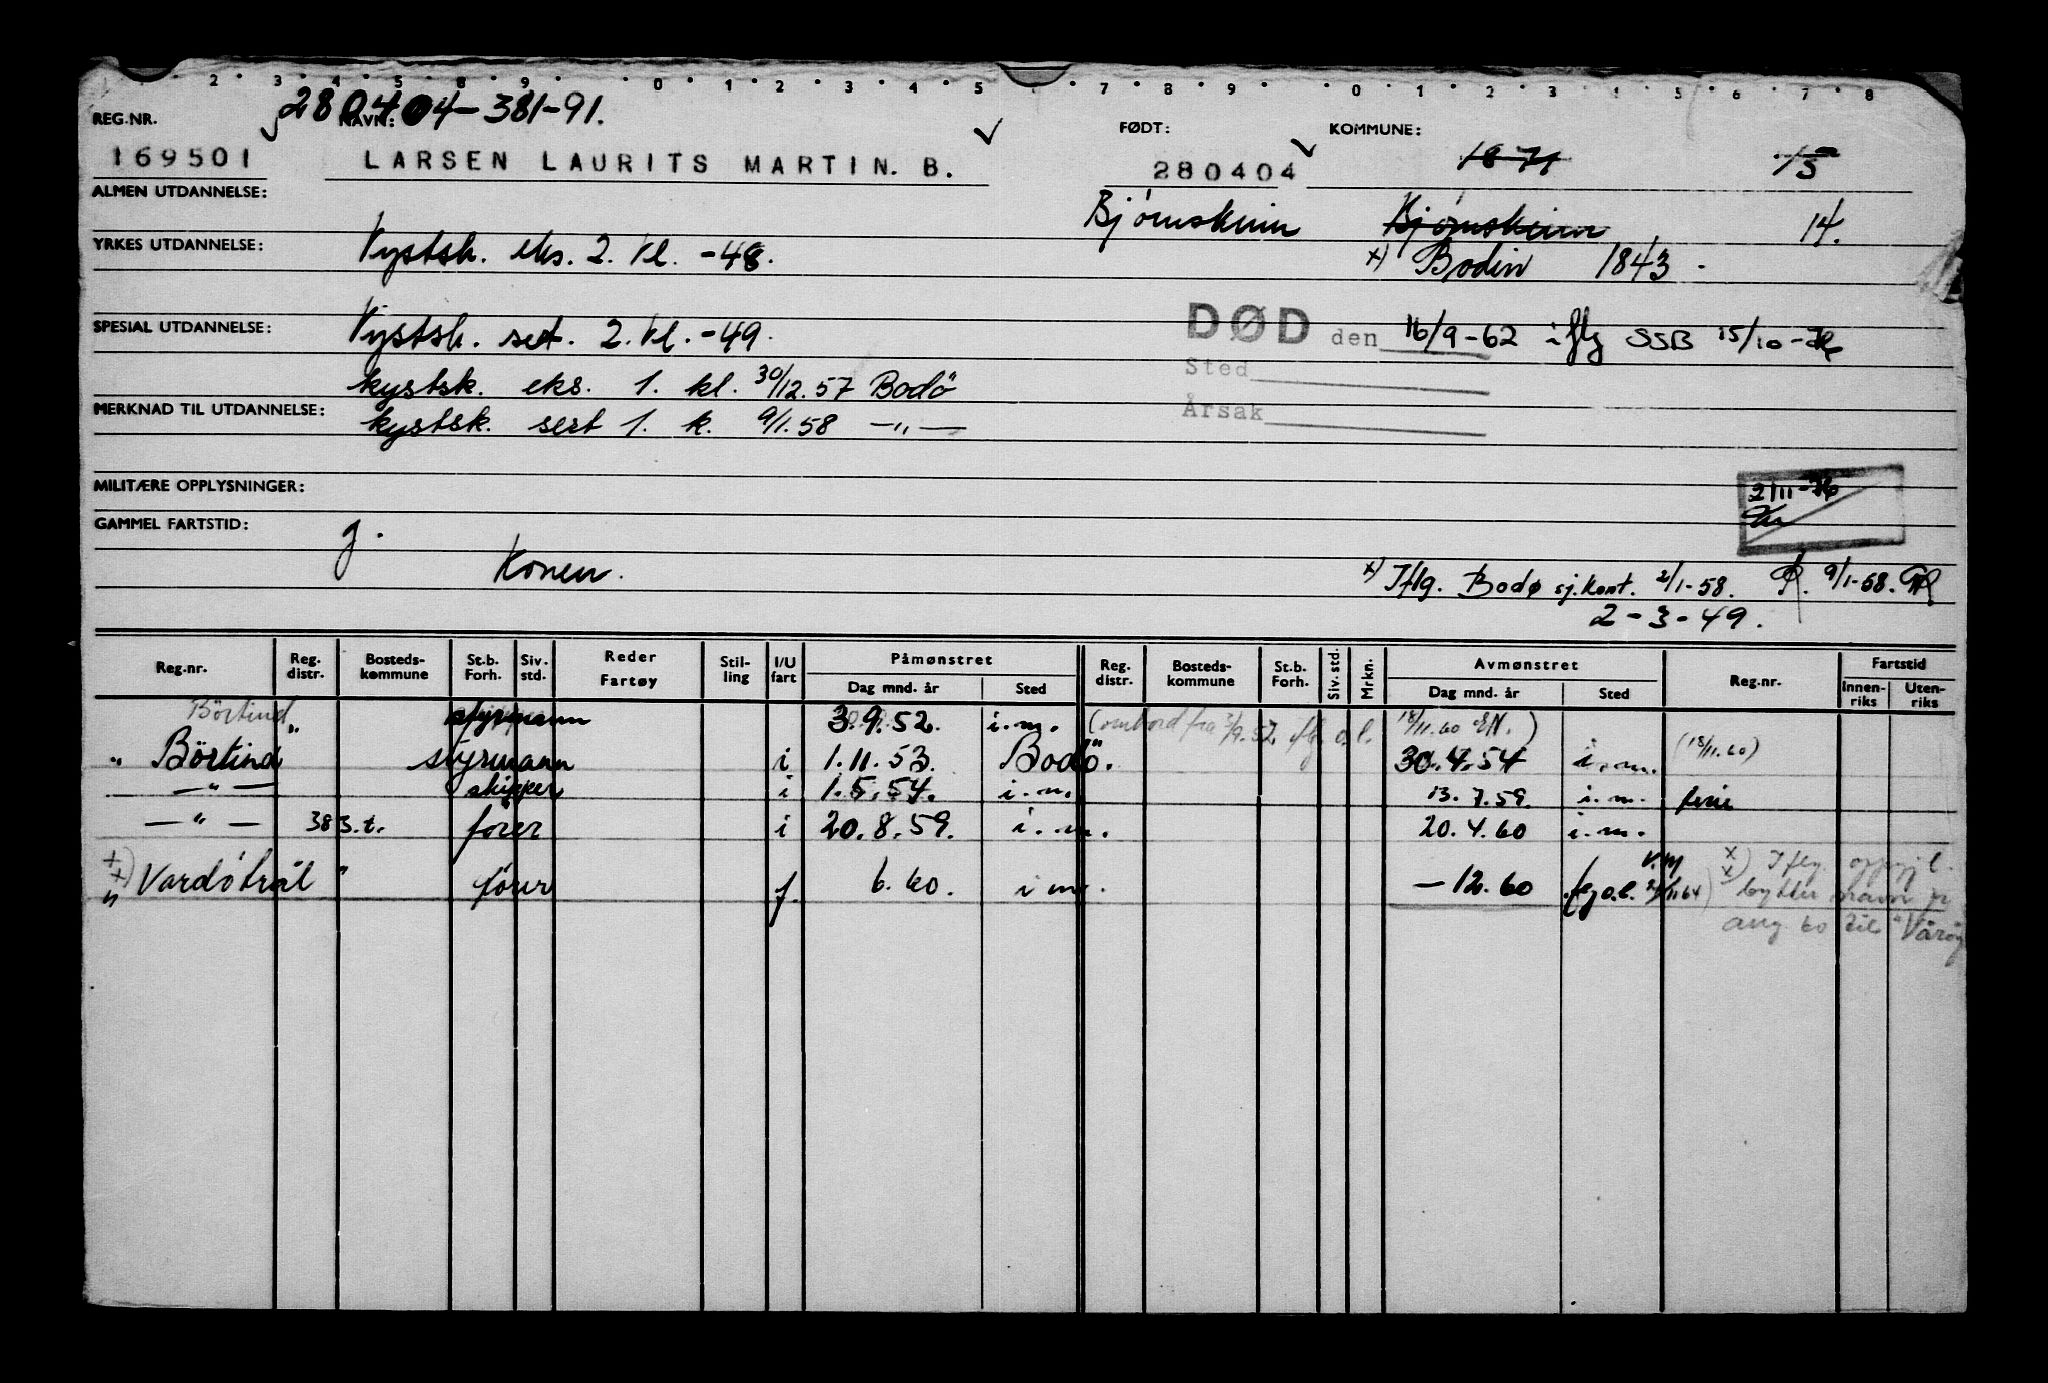 2 3 4 5 8 9 0 1 2 3 4 5 7 8 9 0 1 2 3 4 5 6 7 8
280404-381-91.
REG.NR. NAVN: FØDT: KOMMUNE:
169501 LARSEN LAURITS MARTIN. B. 280404 1871 15
ALMEN UTDANNELSE: Bjørnskinn Bjørnskinn 14.
YRKES UTDANNELSE: Kystsk. eks. 2. kl. -48. x) Bodin 1843.
SPESIAL UTDANNELSE: Kystsk. set. 2. kl. -49. DØD den 16/9-62 iflg SSB 15/10-76
kystsk. eks. 1. kl. 30/12.57 Bodö Sted
MERKNAD TIL UTDANNELSE: kystsk. sert 1. k. 9/1.58 -"- Årsak
MILITÆRE OPPLYSNINGER: 2/11-76
GAMMEL FARTSTID: g.
Konen. x) Iflg. Bodø sj.kont. 2/1-58. 9/1-58.
2-3-49.
Reg.nr. Reg. distr. Bosteds-kommune St.b. Forh. Siv. std. Reder Fartøy Stil-ling I/U fart Påmønstret Dag mnd. år Sted Reg. distr. Bosteds-kommune St.b. Forh. Siv. std. Mrkn. Avmønstret Dag mnd. år Sted Reg.nr. Fartstid Innen-riks Uten-riks
Börtind " styrmann 3.9.52. i.m. (ombord fra 3/9.52 ifg. o.l. 18/11.60 EN.)
" Börtind styrmann i 1.11.53. Bodö. 30.4.54 i.m. (18/11.60)
-"- skipper i 1.5.54. i.m. 13.7.59. i.m. ferie
-"- 383.t. fører i 20.8.59. i.m. 20.4.60 i.m.
xx) " Vardøtrål " fører f. 6.60. i m. -12.60 fg o.l. xx) Iflg. oppgj l.
bytter navn
aug 60 til "Värøy